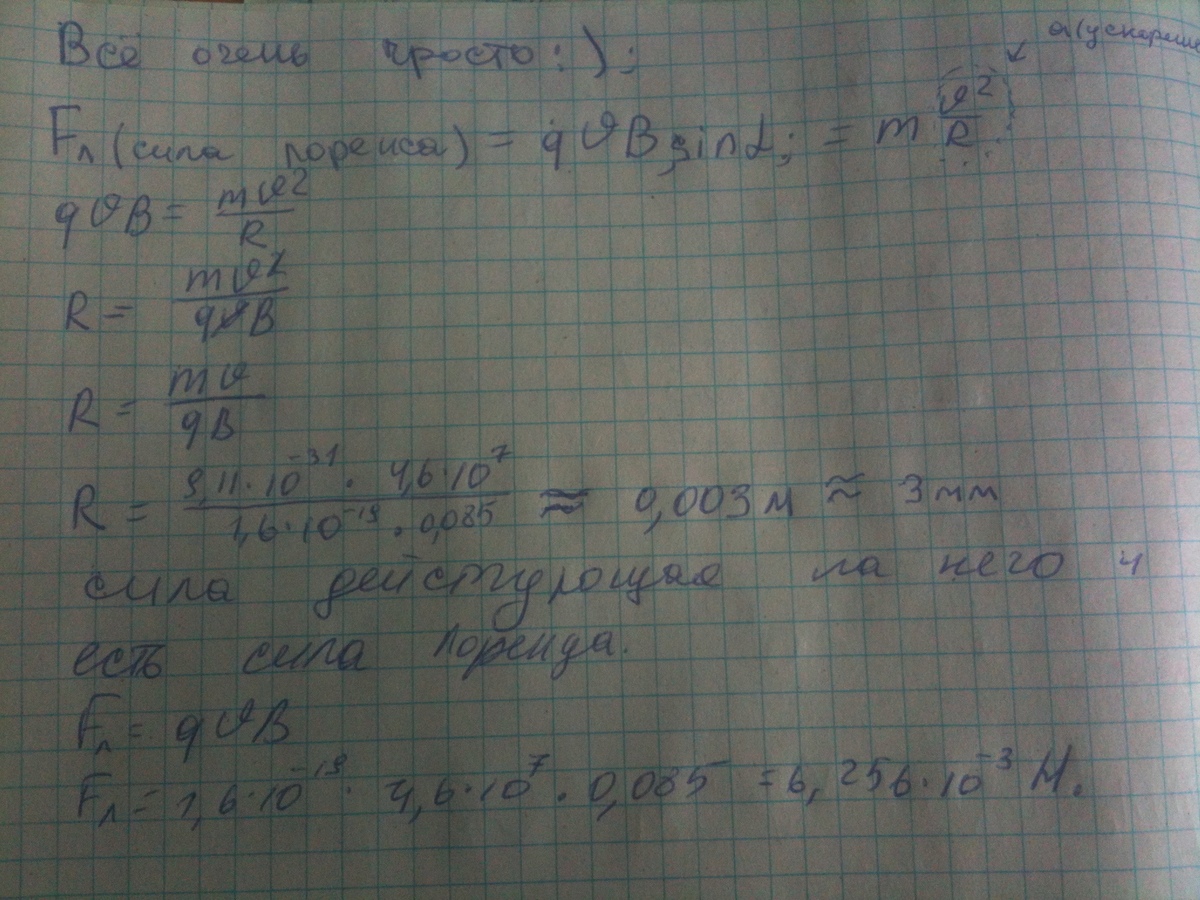 Всё очень просто :) ;
a (ускорение
Fл (сила лоренса) = qϑB sinα; = m ϑ²/R
qϑB = mϑ²/R
R = mϑ²/qϑB
R = mϑ/qB
R = 9,11·10⁻³¹ · 4,6·10⁷ / 1,6·10⁻¹⁹ · 0,085 ≈ 0,003м ≈ 3мм
сила действующая на него и
есть сила Лоренца.
Fл = qϑB
Fл = 1,6·10⁻¹⁹ · 4,6·10⁷ · 0,085 = 6,256·10⁻³ Н.